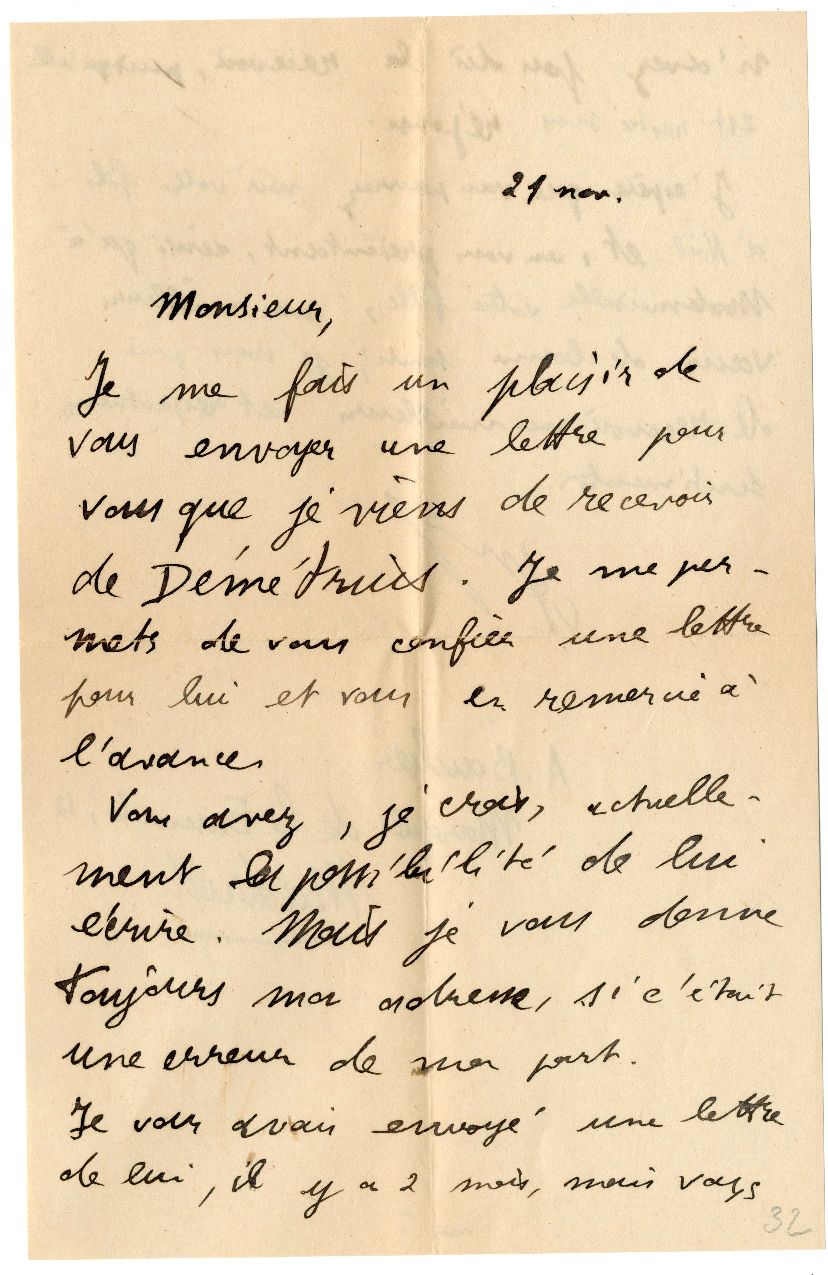 21 nov.
Monsieur,
Je me fais un plaisir de
vous envoyer une lettre pour
vous que je viens de recevoir
de Démétrius. Je me per-
mets de vous confier une lettre
pour lui et vous en remercie à
l'avance.
Vous avez, je crois, actuelle-
ment la possibilité de lui
écrire. Mais je vous donne
toujours mon adresse, si c'était
une erreur de ma part.
Je vous avais envoyé une lettre
de lui, il y a 2 mois, mais vous
32